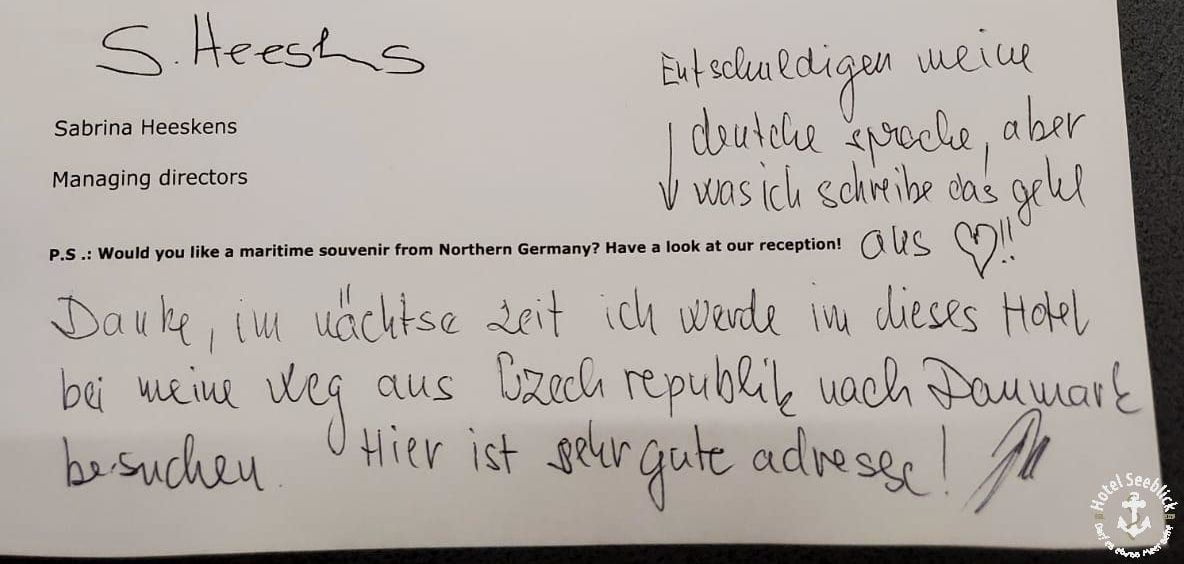 S. Heeskens
Sabrina Heeskens
Managing directors
Entschuldigen meine
deutche sprache, aber
was ich schreibe das geht
aus ♡!!
P.S .: Would you like a maritime souvenir from Northern Germany? Have a look at our reception!
Danke, im nächtse zeit ich werde in dieses Hotel
bei meine weg aus Czech republik nach Danmark
besuchen. Hier ist sehr gute adresse!
Hotel Seeblick
Darf es etwas Meer sein?